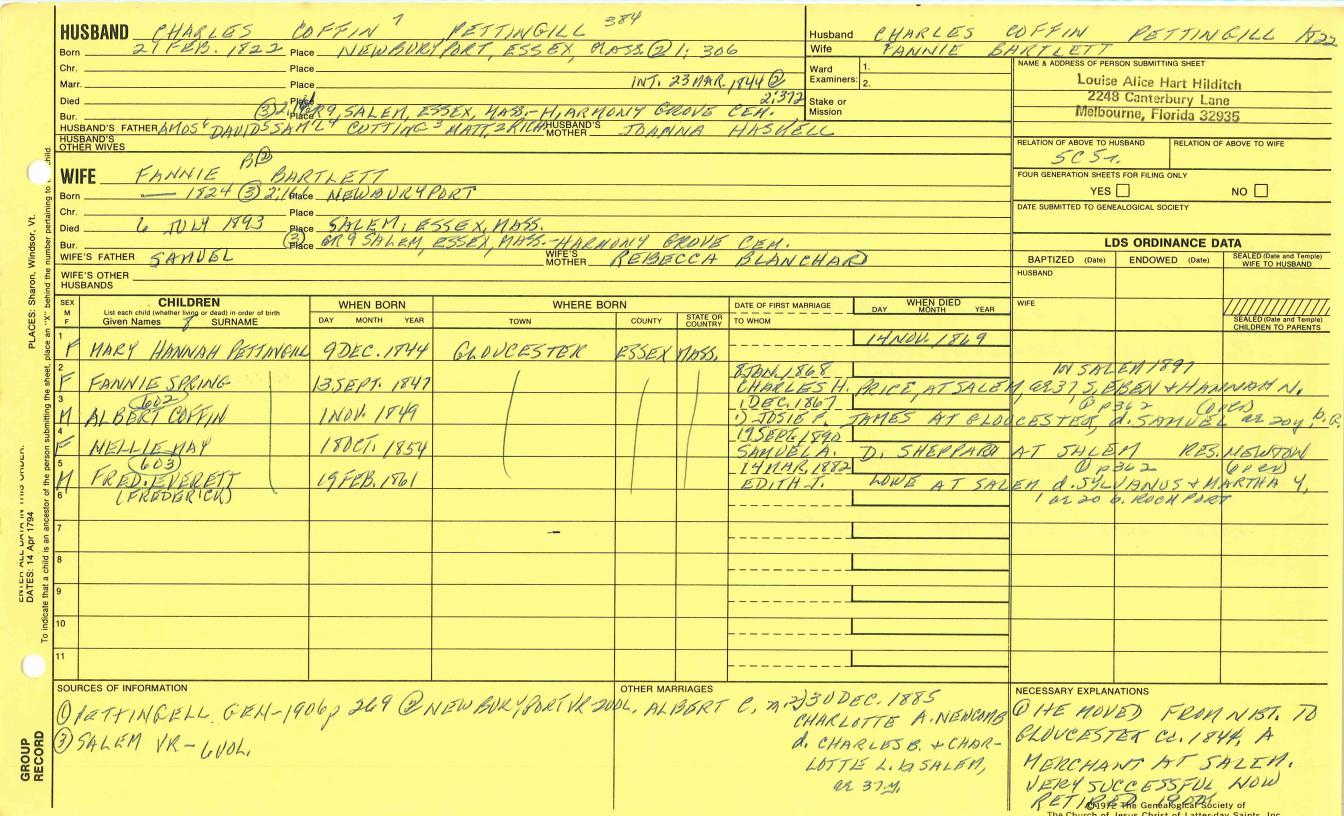 HUSBAND CHARLES COFFIN 7 PETTINGILL 384
Born 27 FEB. 1822 Place NEWBURYPORT, ESSEX, MASS. ② 1; 306
Chr. Place
Marr. Place INT. 23 MAR. 1844 ②
Died Place 2;372
Bur. ③ Place GR9, SALEM, ESSEX, MASS.- HARMONY GROVE CEM.
HUSBAND'S FATHER AMOS⁶ DAVID⁵ SAML⁴ CUTTING³ MATT,2 RICH HUSBAND'S MOTHER JOANNA HASKELL
HUSBAND'S OTHER WIVES
Husband CHARLES COFFIN PETTINGILL
Wife FANNIE BARTLETT
Ward Examiners: 1.
2.
Stake or Mission
NAME & ADDRESS OF PERSON SUBMITTING SHEET
Louise Alice Hart Hilditch
2248 Canterbury Lane
Melbourne, Florida 32935
RELATION OF ABOVE TO HUSBAND RELATION OF ABOVE TO WIFE
5C 5r.
FOUR GENERATION SHEETS FOR FILING ONLY
YES NO
DATE SUBMITTED TO GENEALOGICAL SOCIETY
WIFE FANNIE BARTLETT
Born — 1824 ③ 2;166 Place NEWBURYPORT
Chr. Place
Died 6 JULY 1893 Place SALEM, ESSEX, MASS.
Bur. ③ Place GR9 SALEM, ESSEX, MASS.- HARMONY GROVE CEM.
WIFE'S FATHER SAMUEL WIFE'S MOTHER REBECCA BLANCHARD
WIFE'S OTHER HUSBANDS
LDS ORDINANCE DATA
BAPTIZED (Date) ENDOWED (Date) SEALED (Date and Temple) WIFE TO HUSBAND
HUSBAND
WIFE
SEALED (Date and Temple) CHILDREN TO PARENTS
SEX M F CHILDREN WHEN BORN WHERE BORN DATE OF FIRST MARRIAGE WHEN DIED
List each child (whether living or dead) in order of birth
Given Names 8 SURNAME DAY MONTH YEAR TOWN COUNTY STATE OR COUNTRY TO WHOM DAY MONTH YEAR
1 F MARY HANNAH PETTINGILL 9 DEC. 1844 GLOUCESTER ESSEX MASS. 14 NOV. 1869
2 8 JAN. 1868 SALEM 1897
F FANNIE SPRING 13 SEPT. 1847 CHARLES H. PRICE, AT SALEM, ae 37, S. EBEN & HANNAH N.
3 (602) 1 DEC. 1867 ① p362 (over)
M ALBERT COFFIN 1 NOV. 1849 1) JOSIE P. JAMES AT GLOUCESTER, d. SAMUEL ae 20y,
4 19 SEPT. 1890
F NELLIE MAY 18 OCT. 1854 SAMUEL A. D. SHEPPARD AT SALEM RES. NEWTON
5 (603) 14 MAR. 1882 ① p362 (over)
M FRED. EVERETT 19 FEB. 1861 EDITH J. LOWE AT SALEM d. SYLVANUS & MARTHA Y,
6 (FREDERICK) ae 20 b. ROCKPORT
7
8
9
10
11
SOURCES OF INFORMATION
① PETTINGELL GEN-1906, 269 ② NEWBURYPORT VR-2VOL.
③ SALEM VR - 6 VOL.
OTHER MARRIAGES
ALBERT C, m. 2) 30 DEC. 1885
CHARLOTTE A. NEWCOMB
d. CHARLES B. & CHAR-
LOTTE L. b SALEM,
ae 37 y,
NECESSARY EXPLANATIONS
① HE MOVED FROM NBT. TO
GLOUCESTER ca. 1844, A
MERCHANT AT SALEM.
VERY SUCCESSFUL NOW
RETIRED
©1972 The Genealogical Society of
The Church of Jesus Christ of Latter-day Saints, Inc.
GROUP RECORD
ENTER ALL DATA IN THIS ORDER:
DATES: 14 Apr 1794
PLACES: Sharon, Windsor, Vt.
To indicate that a child is an ancestor of the person submitting the sheet, place an "X" behind the number pertaining to child.